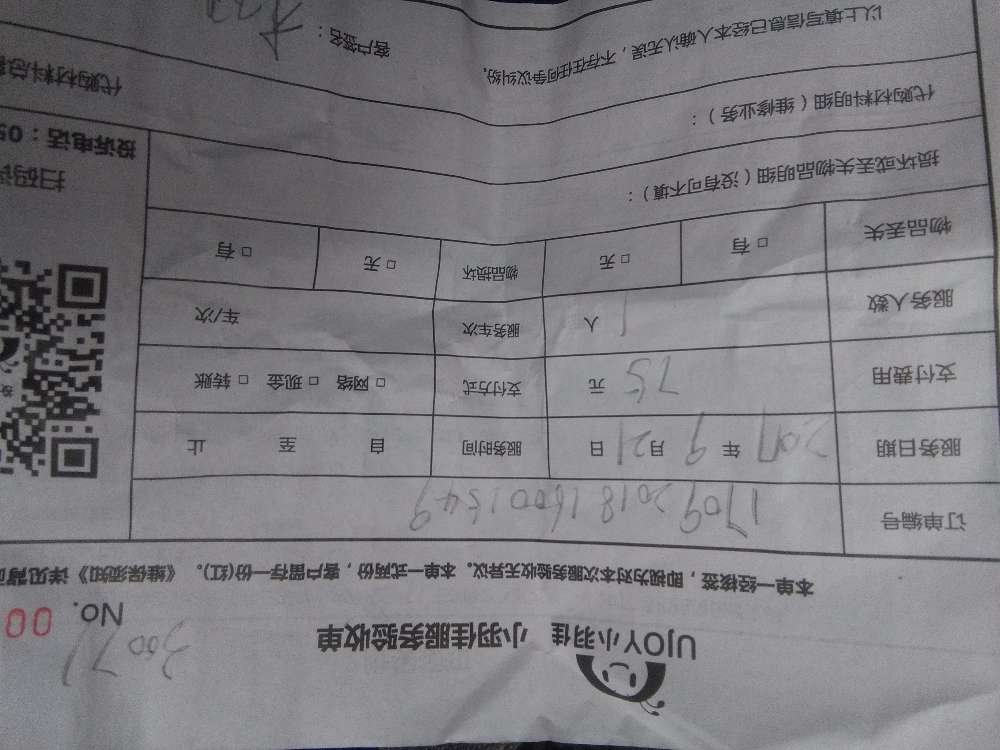 UJOY小羽佳 小羽佳服务验收单
30071
No. 00
本单一经核签，即视为对本次服务验收无异议。本单一式两份，客户留存一份(红)。《维保须知》详见背
订单编号 1709201816001549
服务日期 2017年9月21日 服务时间 自 至 止
支付费用 75 元 支付方式 □ 网络 □ 现金 □ 转账
服务人数 1 人 服务车次 车/次
物品丢失 □ 有 □ 无 物品损坏 □ 无 □ 有
损坏或丢失物品明细（没有可不填）：
扫码
投诉电话：05
代购材料明细（维修业务）：
代购材料总
以上填写信息已经本人确认无误，不存在任何争议纠纷。
客户签名：